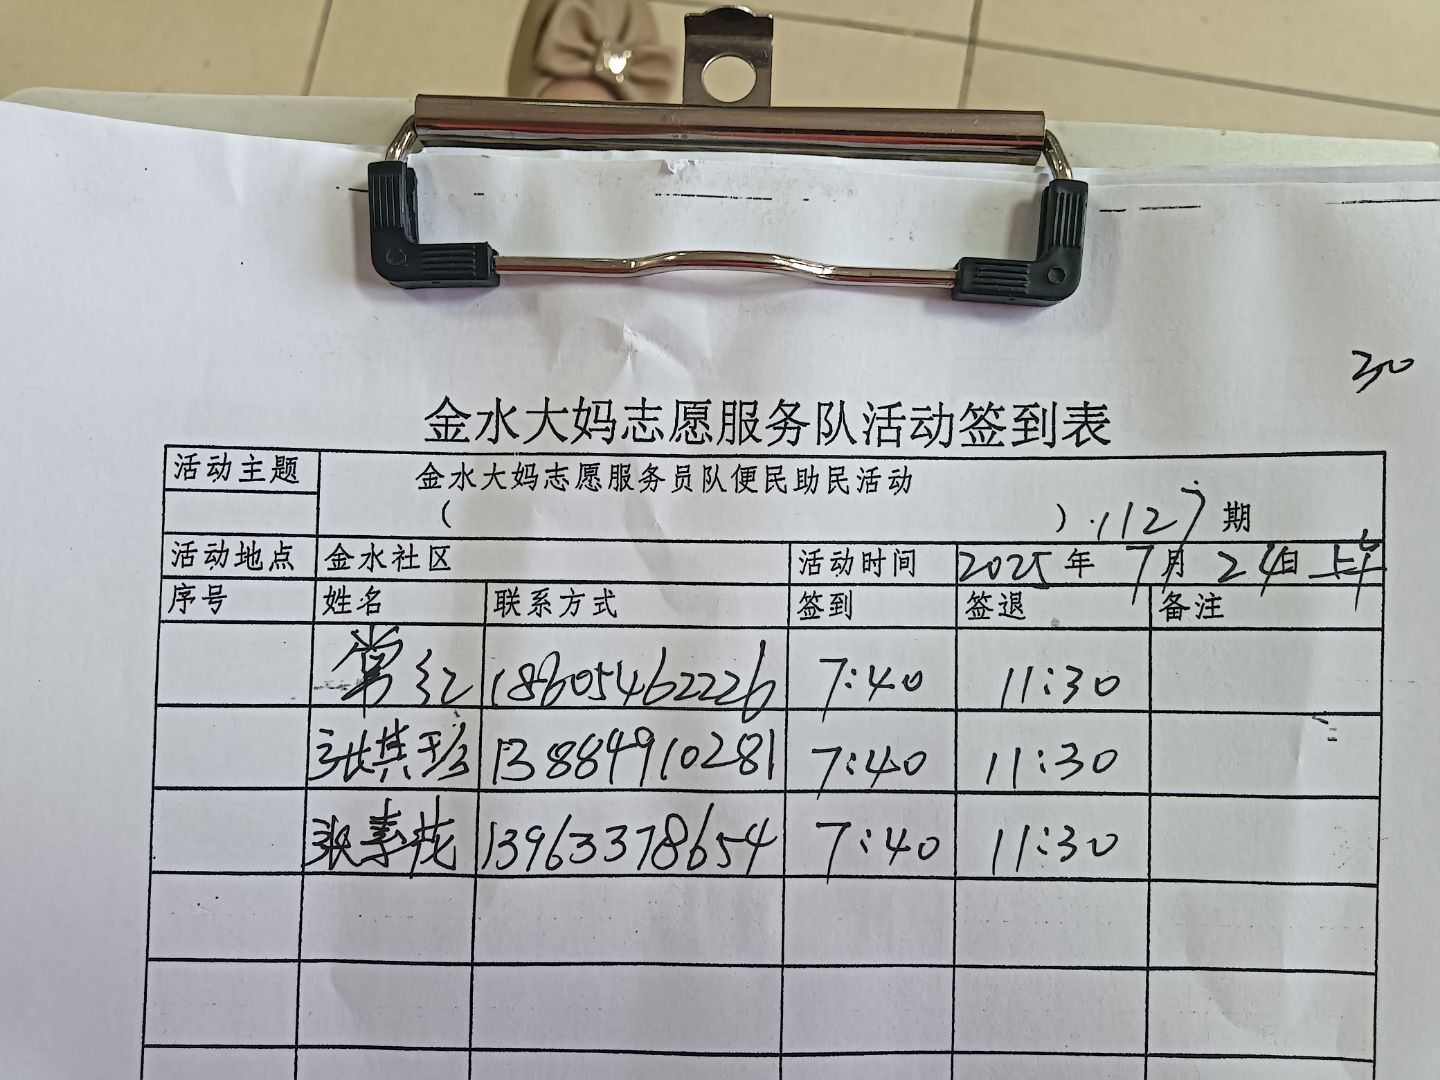 30
金水大妈志愿服务队活动签到表
活动主题 金水大妈志愿服务员队便民助民活动
( ) 1127期
活动地点 金水社区 活动时间 2025年7月24日上午
序号 姓名 联系方式 签到 签退 备注
常红 18605462226 7:40 11:30
张其珍 13884910281 7:40 11:30
张素花 13963378654 7:40 11:30